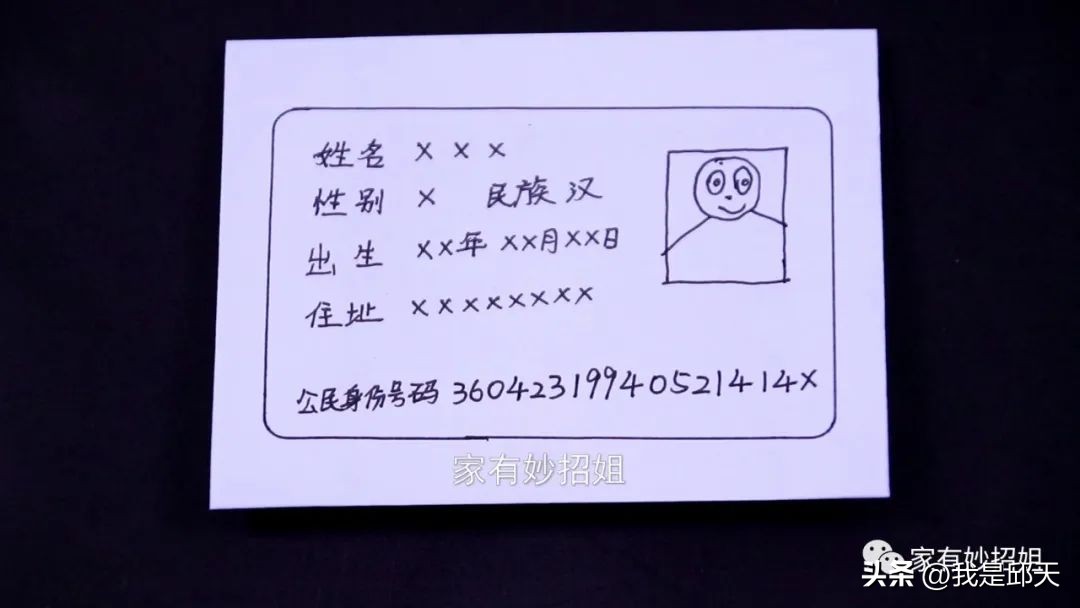 姓名 × × ×
性别 × 民族 汉
出生 ××年 ××月××日
住址 ××××××××
公民身份号码 36042319940521414×
家有妙招姐
家有妙招姐
头条 @我是邱天